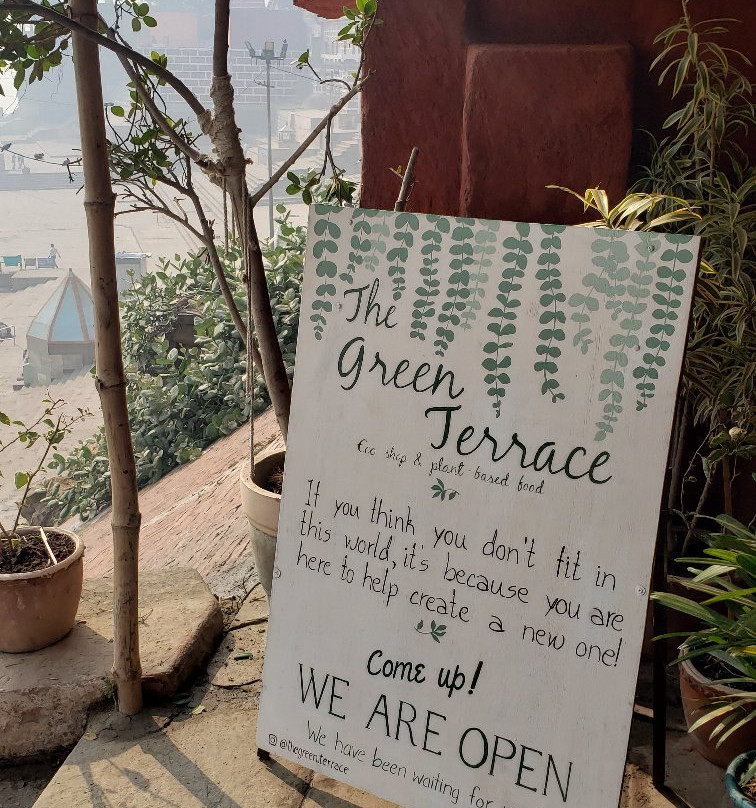 The
Green
Terrace
Eco shop & plant-based food
If you think you don't fit in
this world, it's because you are
here to help create a new one!
Come up!
WE ARE OPEN
We have been waiting for
@thegreen.terrace